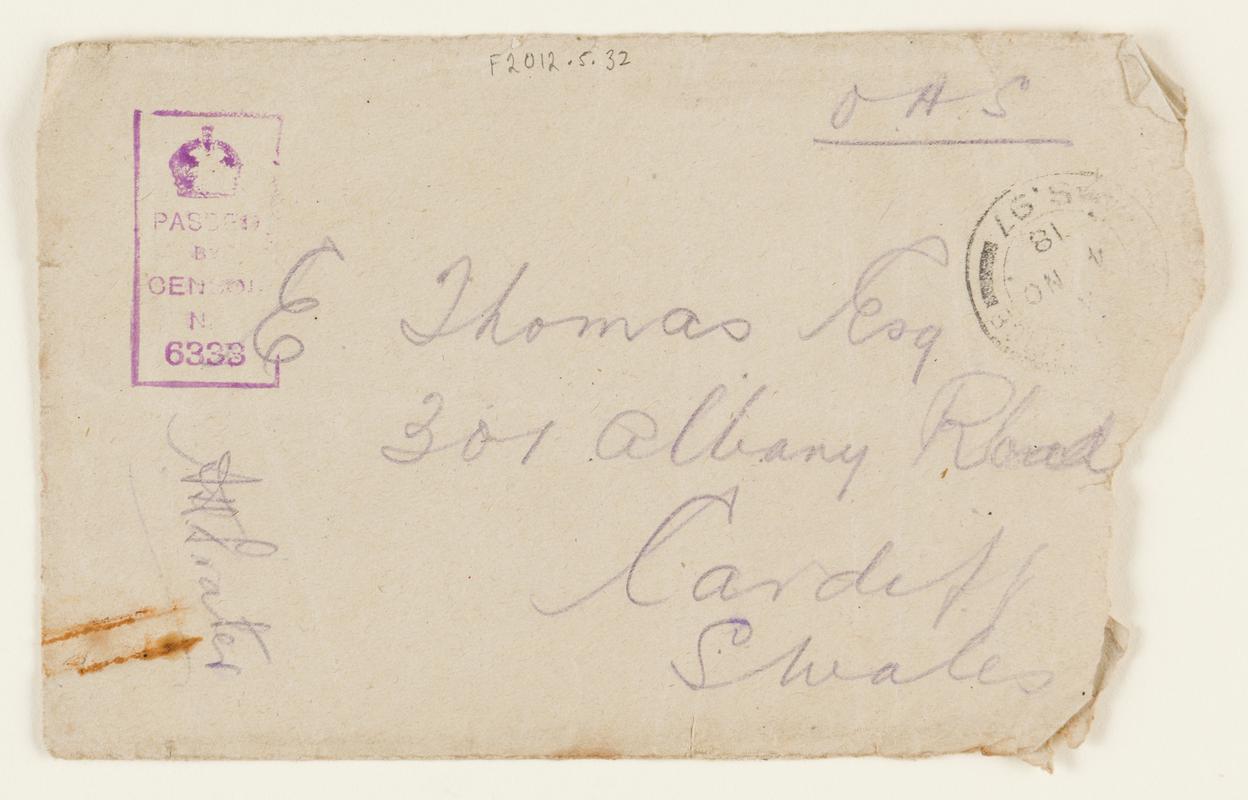 F2012.5.32
O A S
PASSED
BY
CENSOR
N
6333
18
NO
E Thomas Esq
301 Albany Road
Cardiff
S Wales